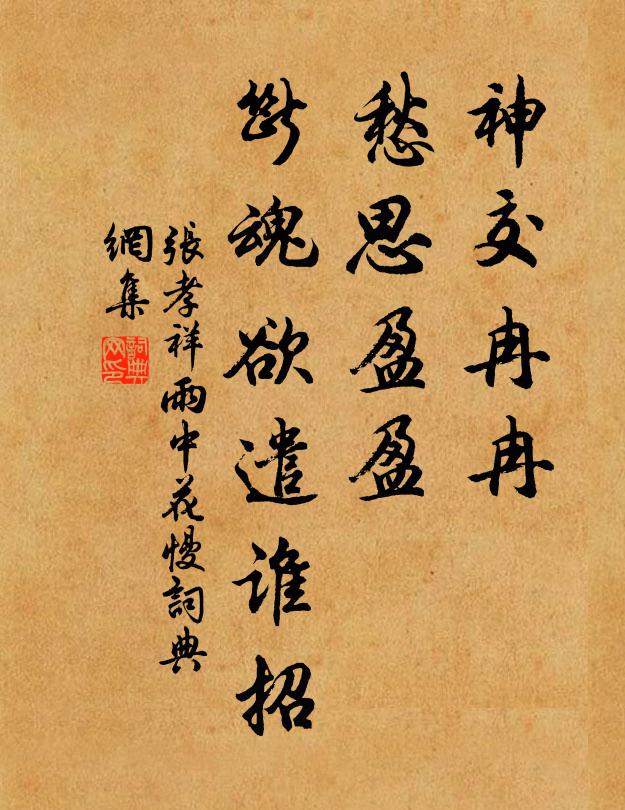 神交冉冉
愁思盈盈
斷魂欲遣誰招
張孝祥雨中花慢詞典
網集
詞典網印